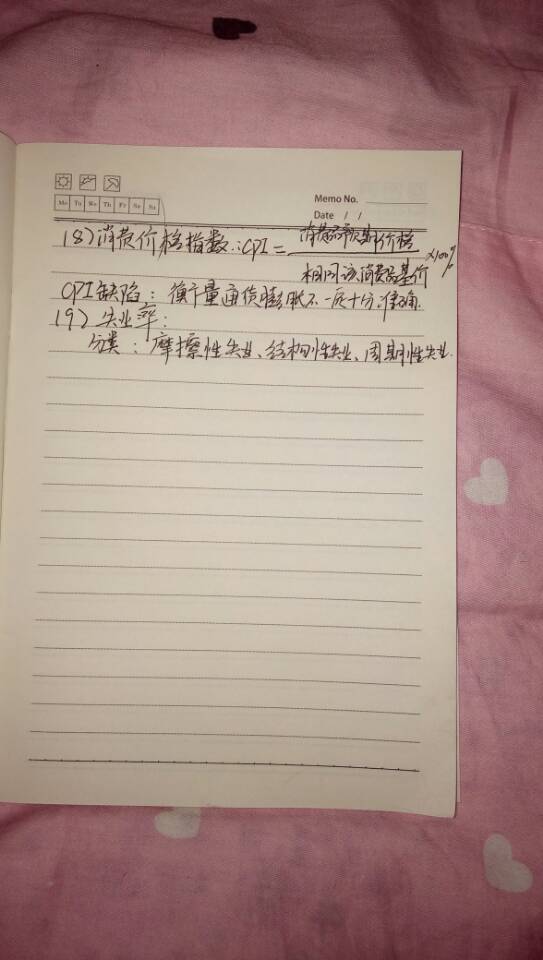 Mo Tu We Th Fr Sa Su
Memo No.
Date / /
(8)消费价格指数:CPI=
消费品市场基价格
相同该消费品基价
×100%
CPI缺陷:衡量通货膨胀不一定十分准确.
(9)失业率:
分类:摩擦性失业、结构性失业、周期性失业.